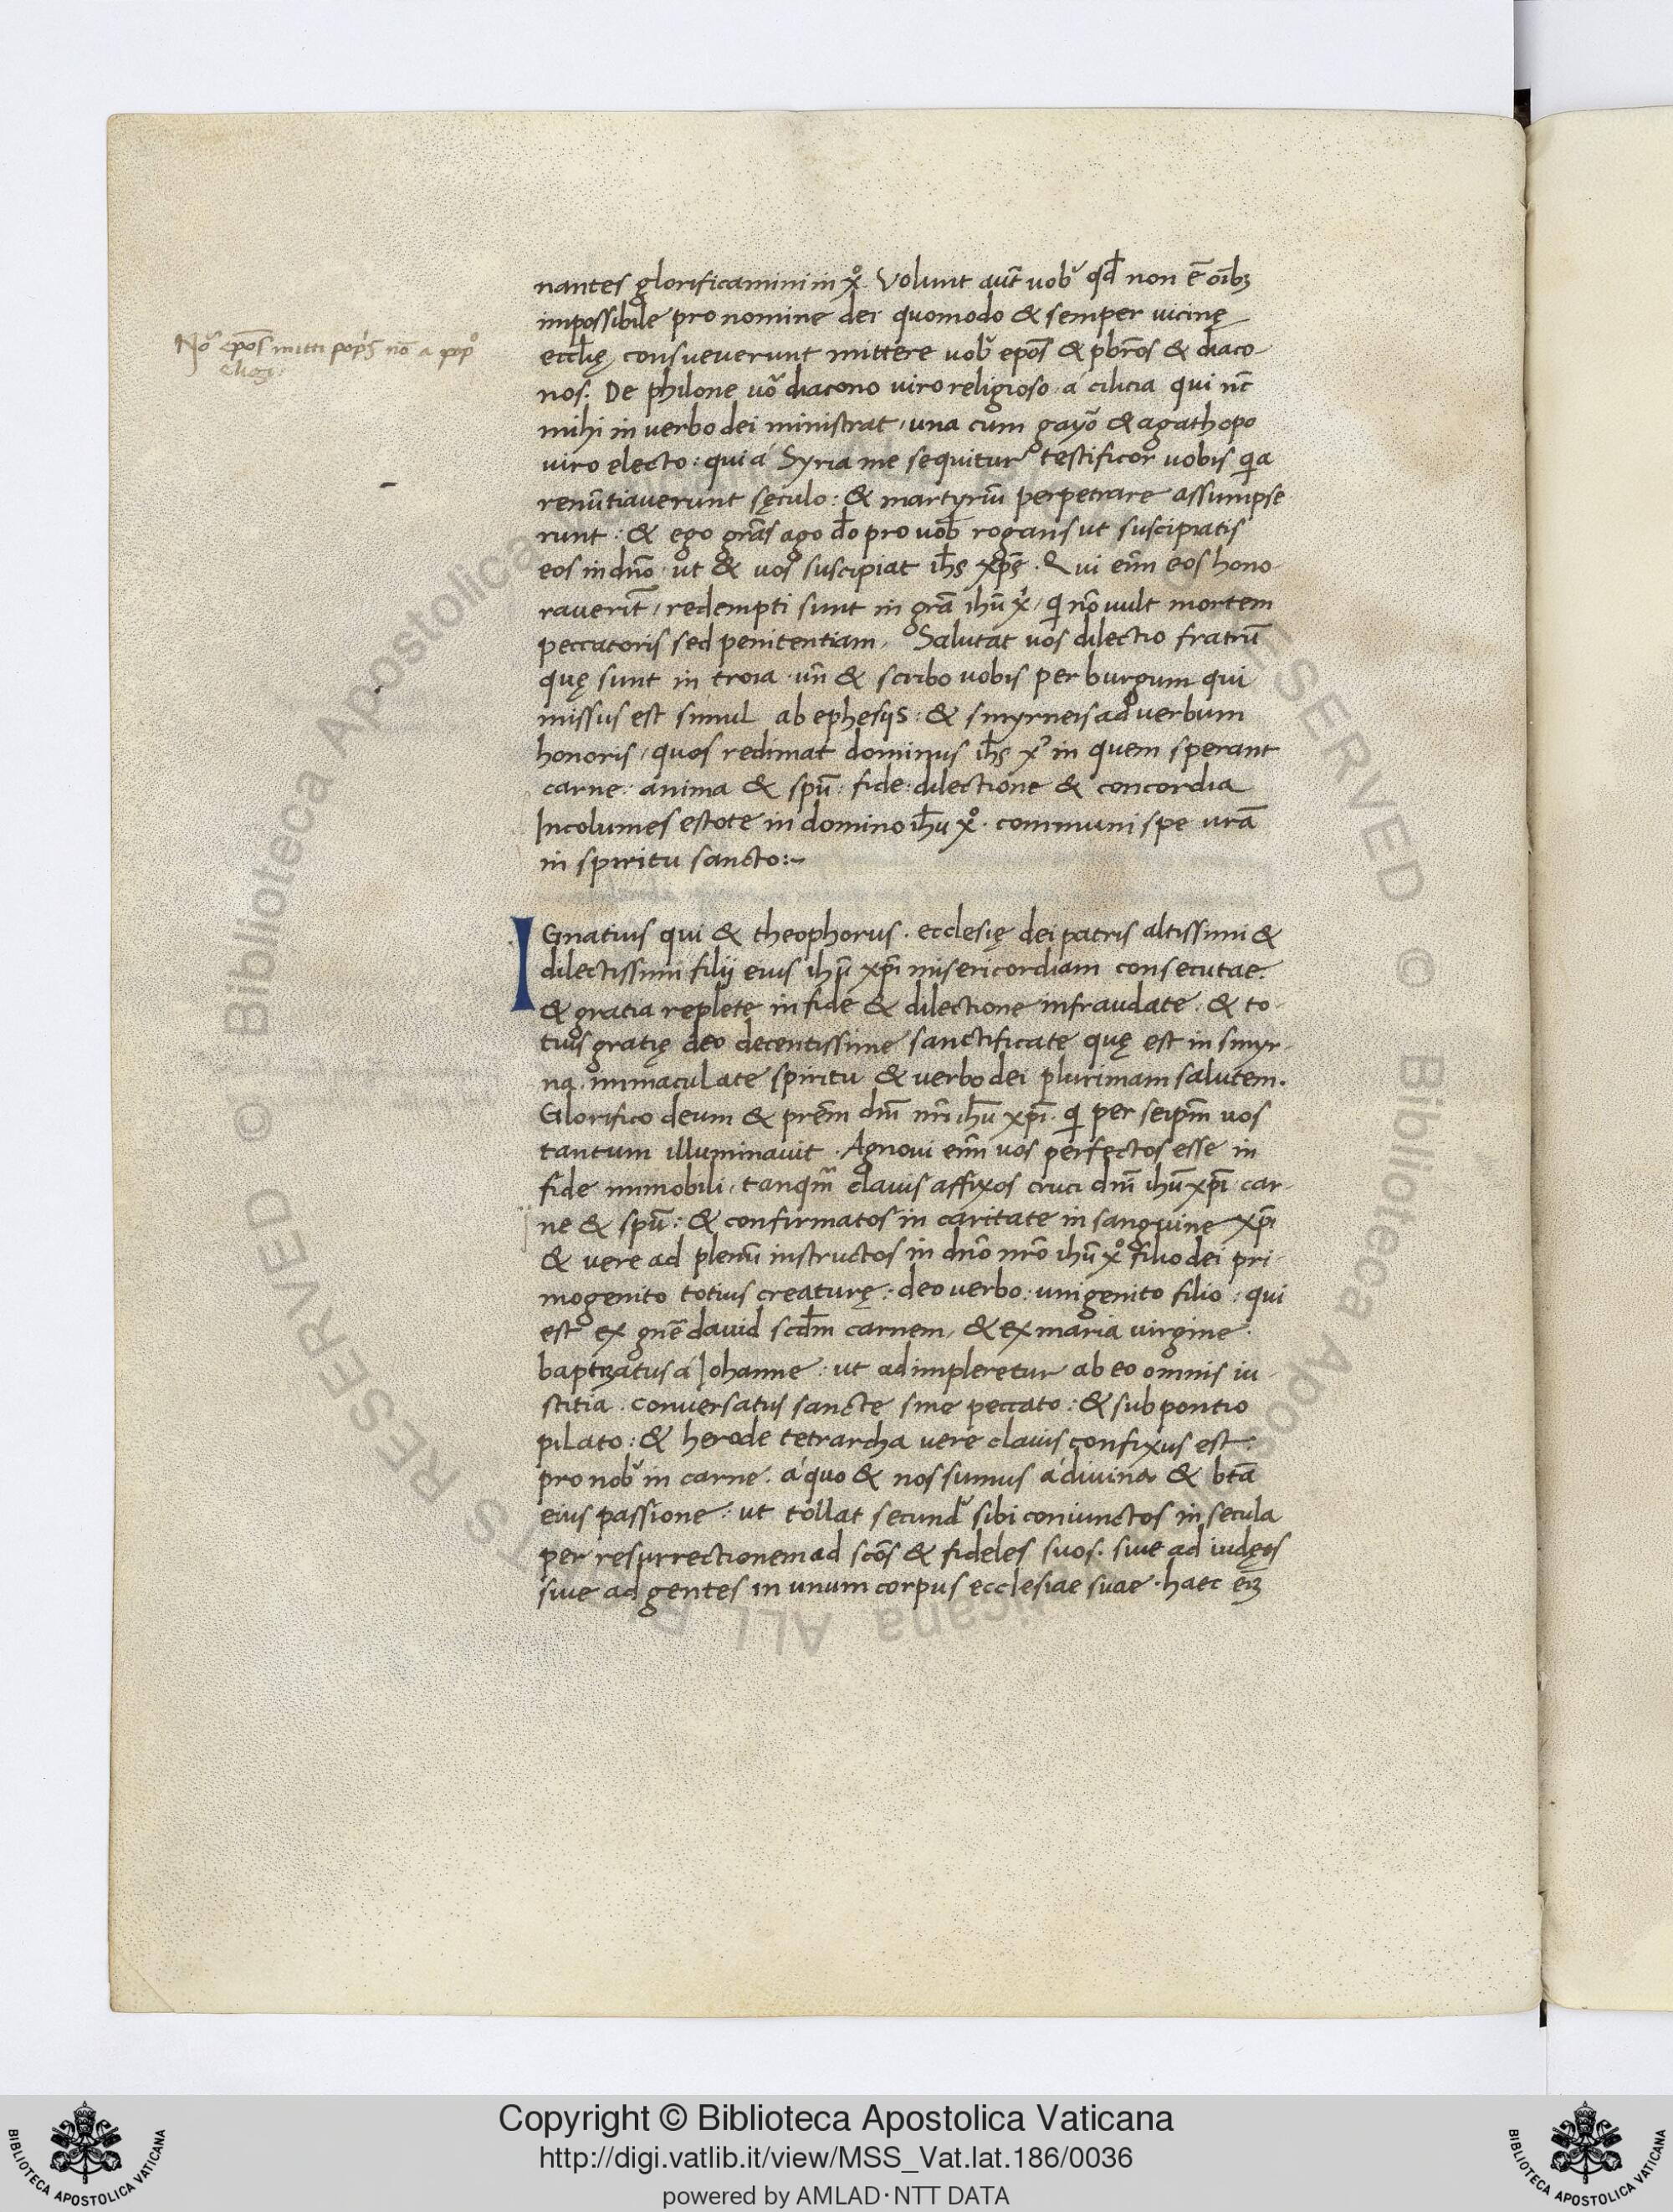 nantes glorificamini in xº. Volunt aut̄ uob᷒ qd̄ non ē oīb3
impossibile pro nomine dei quomodo & semper uicinę
Noᷓ ep̄os mitti pop̄s nō a pop̊
eccl̄ię consueuerunt mittere uob᷒ ep̄os & pb̄ros & diaco-
eligi.
nos. De philone uō diacono uiro religioso a cilicia qui nc̄
mihi in verbo dei ministrat, una cum gayō & agathopo
viro electo: qui á Syria me sequitur testificor uobis qa
renūtiaverunt sęculo: & martyriū perpetrare assumpse
runt: & ego grās ago do pro uob rogans ut suscipiatis
eos in dn̄o ut & uos suscipiat ih̄s xp̄s. Qui enī eos hono-
raverīt, redempti sunt in grā ihū xi, qi nō uult mortem
peccatoris sed penitentiam. Salutat uos dilectio fratrū
quę sunt in troia un̄ & scribo uobis per burgum qui
missus est simul ab ephesijs: & smyrneis ad uerbum
honoris, quos redimat dominus ih̄s x᷒ in quem sperant
carne: anima & spū: fide: dilectione & concordia
Incolumes estote in domino ih̄u xº. communi spe urā
in spiritu sancto:-
IGnatius qui & theophorus. ecclesię dei patris altissimi &
dilectissimi filij eius ihū xp̄i misericordiam consecutae:
& gratia replete in fide & dilectione infraudate: & to-
tius gratię deo decentissime sanctificate quę est in smyr-
na. immaculate spiritu & uerbo dei plurimam salutem.
Glorifico deum & prēm dn̄i nr̄i ih̄u xp̄i. qi per seipm̄ uos
tantum illuminauit. Agnoui enī uos perfectos esse in
fide immobili, tanqm̄ clauis affixos cruci dn̄i ihū xp̄i car-
ne & spū: & confirmatos in caritate in sanguine xp̄i
& vere ad plenū instructos in dn̄o nr̄o ihū xº filio dei pri-
mogenito totius creaturę: deo verbo: unigenito filio: qui
est ex gn̄e david scd̄m carnem, & ex maria uirgine:
baptizatus á Iohanne: ut adimpleretur ab eo omnis iu-
stitia. conuersatus sancte sine peccato: & sub pontio
pilato: & herode tetrarcha vere clauis confixus est:
pro nob᷒ in carne. á quo & nos sumus á divina & bt̄a
eius passione: ut tollat secund᷒ sibi coniunctos in secula
per resurrectionem ad scōs & fideles suos. siue ad iudęos
siue ad gentes in unum corpus ecclesiae suae. haec eī3
Copyright © Biblioteca Apostolica Vaticana
http://digi.vatlib.it/view/MSS_Vat.lat.186/0036
powered by AMLAD·NTT DATA
BIBLIOTECA APOSTOLICA VATICANA
BIBLIOTECA APOSTOLICA VATICANA